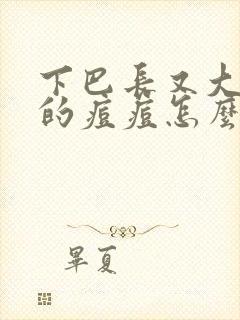 下巴長又大
的痘痘怎麼
畢夏